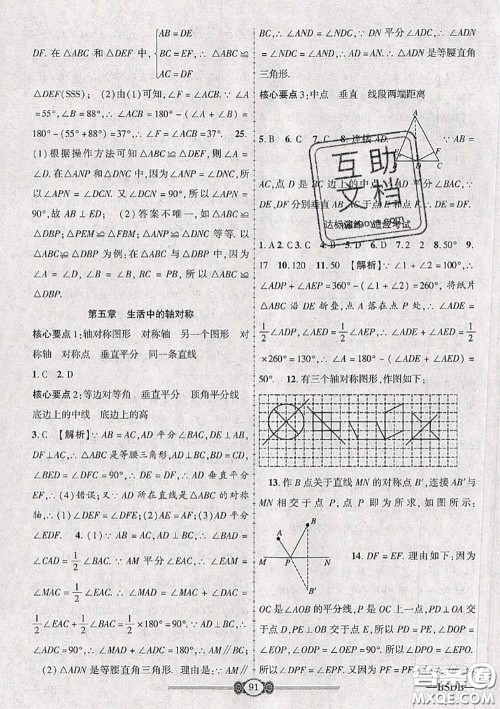 AB=DE
DF. 在△ABC 和△DEF 中, BC=EF, 所以△ABC≌
AC=DF
△DEF(SSS); (2)由(1)可知, ∠F=∠ACB. ∵∠A=
55°, ∠B=88°, ∴∠ACB=180°-(∠A+∠B)=
180°-(55°+88°)=37°, ∴∠F=∠ACB=37°. 25.
(1)根据操作方法可知△ABC≌△DNC. 所以∠A=
∠D. 在△ANP 和△DNC 中, 因为∠A=∠D, ∠ANP=∠DNC,
所以∠APN=∠DCN. 又∠DCN=90°, 所以∠APN=
90°. 故 AB⊥ED; (2)答案不唯一, 如△ABC≌
△DBP; △PEM≌△FBM; △ANP≌△DNC 等. 以
△ABC≌△DBP 为例: 在△ABC 与△DBP 中, 因为∠A
=∠D, ∠B=∠B, BC=PB, 所以△ABC≌
△DBP.
第五章 生活中的轴对称
核心要点1: 轴对称图形 对称轴 另一个图形 对
称轴 对称点 垂直平分 同一条直线
1. C 2. D
核心要点2: 等边对等角 垂直平分 顶角平分线
底边上的中线 底边上的高
3. C 【解析】∵AB=AC, AD 平分∠BAC, ∴AD⊥
BC, ∴△ABC 是等腰三角形, AD⊥BC, ∠BDE=∠CDF,
∠BED=∠DFC=90°, ∴DE=DF. ∴AD 垂直平分
EF, ∴(4)错误; 又∵AD 所在直线是△ABC 的对称
轴, ∴(1)∠DEF=∠DFE; (2)AE=AF; (3)AD 平分
∠EDF. 4. (1)∵AB=AC, AD⊥BC, ∴∠BAD=
∠CAD=1/2∠BAC. ∵AM 平分∠EAC, ∴∠EAM=
∠MAC=1/2∠EAC. ∴∠MAD=∠MAC+∠DAC=
1/2∠EAC+1/2∠BAC=1/2×180°=90°. ∵AD⊥BC,
∴∠ADC=90°, ∴∠MAD+∠ADC=180°, ∴AM∥BC;
(2)△ADN 是等腰直角三角形. 理由是: ∵AM∥
BC, ∴∠AND=∠NDC, ∵DN 平分∠ADC, ∴∠ADN
=∠NDC=∠AND. ∴AD=AN, ∴△ADN 是等腰直角
三角形.
核心要点3: 中点 垂直 线段两端距离
5. B 6. C 7. C 8. 连接 AD. ∵AB=
AC, 点 D 是 BC 边上的中点
DE, DF 分别垂直 AB, AC 于点 E 和 F.
1. A 2. C 3. D 4. D 5. D 6. 2 7. 50° 8. 50° 9.
17 10. 120° 11. 50 【解析】∵∠1=90°, ∴∠2=
∠ADP+∠AEP=360°-(∠1+∠2)=260°, ∵将纸片
△ABC 沿 DE 折叠, 点 A 落在点 P 处, ∴∠ADE=
1/2∠ADP, ∠AED=1/2∠AEP, ∴∠ADE+∠AED=1/2
×260°=130°, ∴∠A=180°-(∠ADE+∠AED)=
50°. 12. 有三个轴对称图形, 作图如下:
13. 作 B 点关于直线 MN 的对称点 B′, 连接 AB′与
MN 相交于点 P, 点 P 即为所求, 如图.
A B
M P N
B′
14. DF=EF. 理由如下: 因为
OC 是∠AOB 的平分线, P 是 OC 上一点, PD⊥OA 交
于点 D, PE⊥OB 交于点 E, 所以∠DOP=∠EOP,
∠ODP=∠OEP=90°, PD=PE, 所以∠OPD=
∠OPE. 所以∠DPF=∠EPF. 又因为 PD=PE, PF=
91
BSDB
互助文档